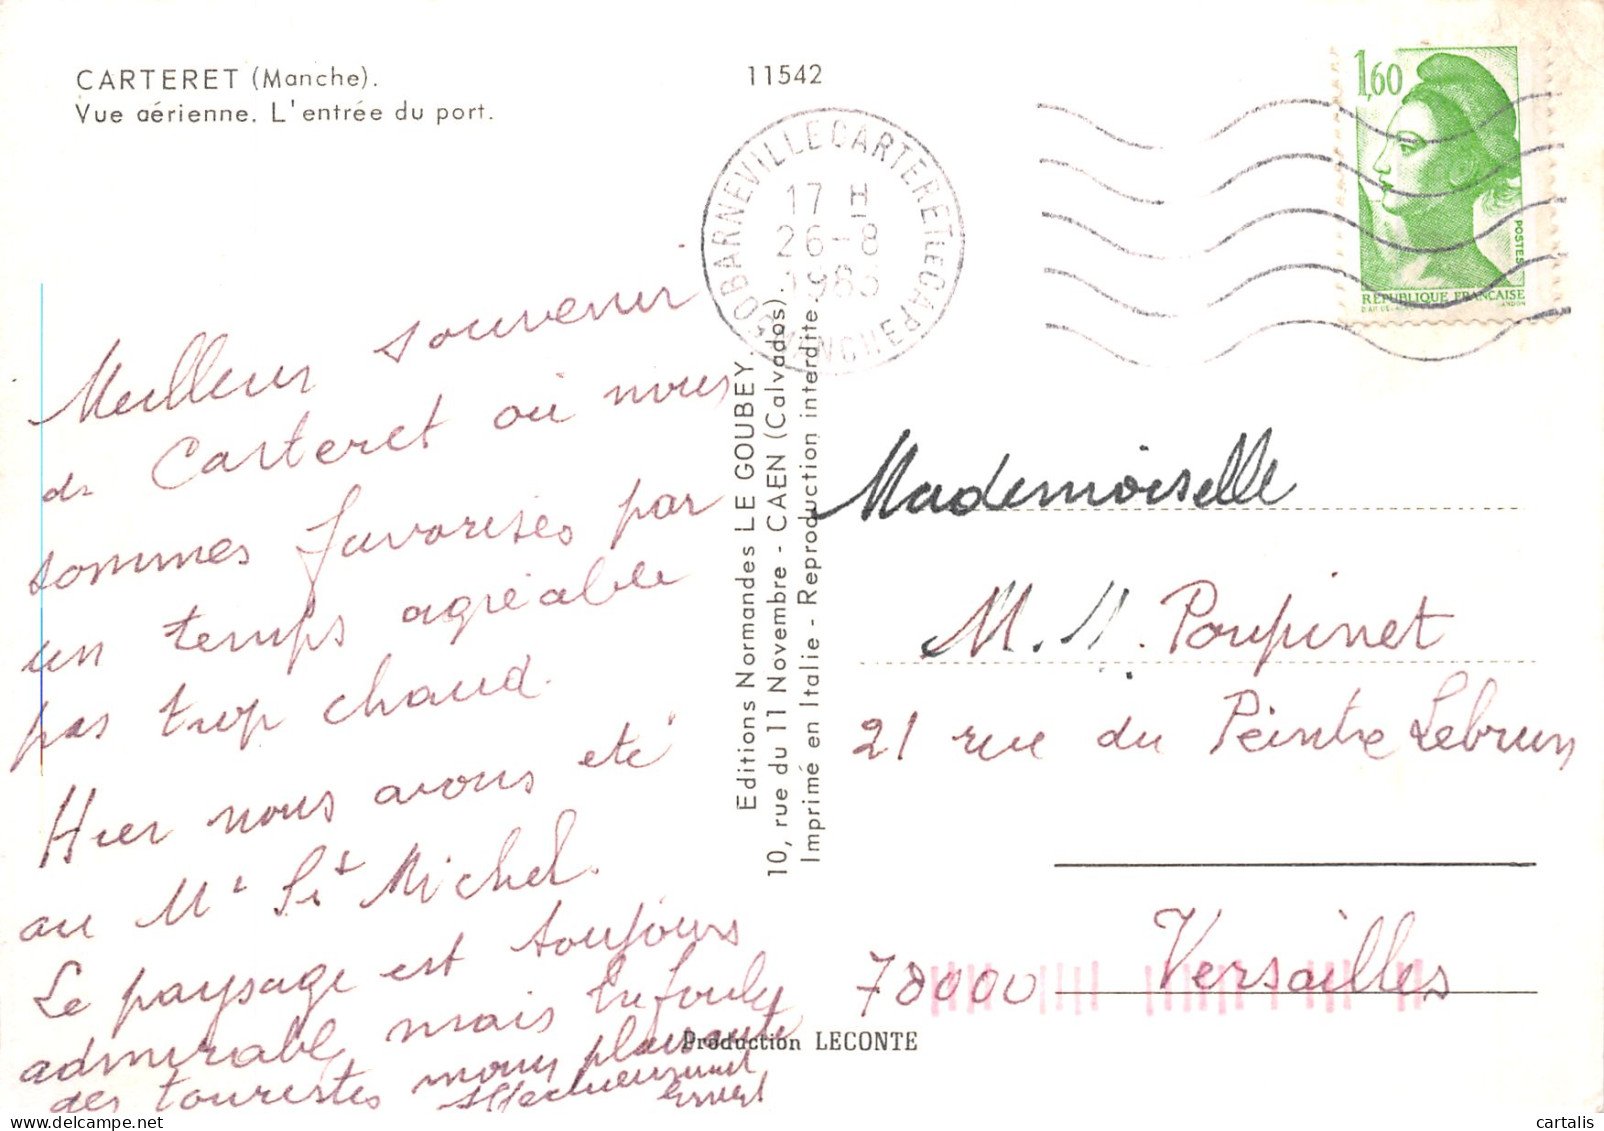 CARTERET (Manche).
Vue aérienne. L'entrée du port.
11542
50 BARNEVILLE CARTERET LE CAP MANCHE
17 H
26-8
1985
1,60
POSTES
RÉPUBLIQUE FRANÇAISE
Meilleur souvenir
de Carteret où nous
sommes favorisés par
un temps agréable
pas trop chaud.
Hier nous avons été
au Mt St Michel.
Le paysage est toujours
admirable mais la foule
des touristes moins plaisante
Affectueusement
Editions Normandes LE GOUBEY.
10, rue du 11 Novembre - CAEN (Calvados).
Imprimé en Italie - Reproduction interdite.
Mademoiselle
M. M. Poupinet
21 rue du Peintre Lebrun
78000 Versailles
Production LECONTE
cartalis